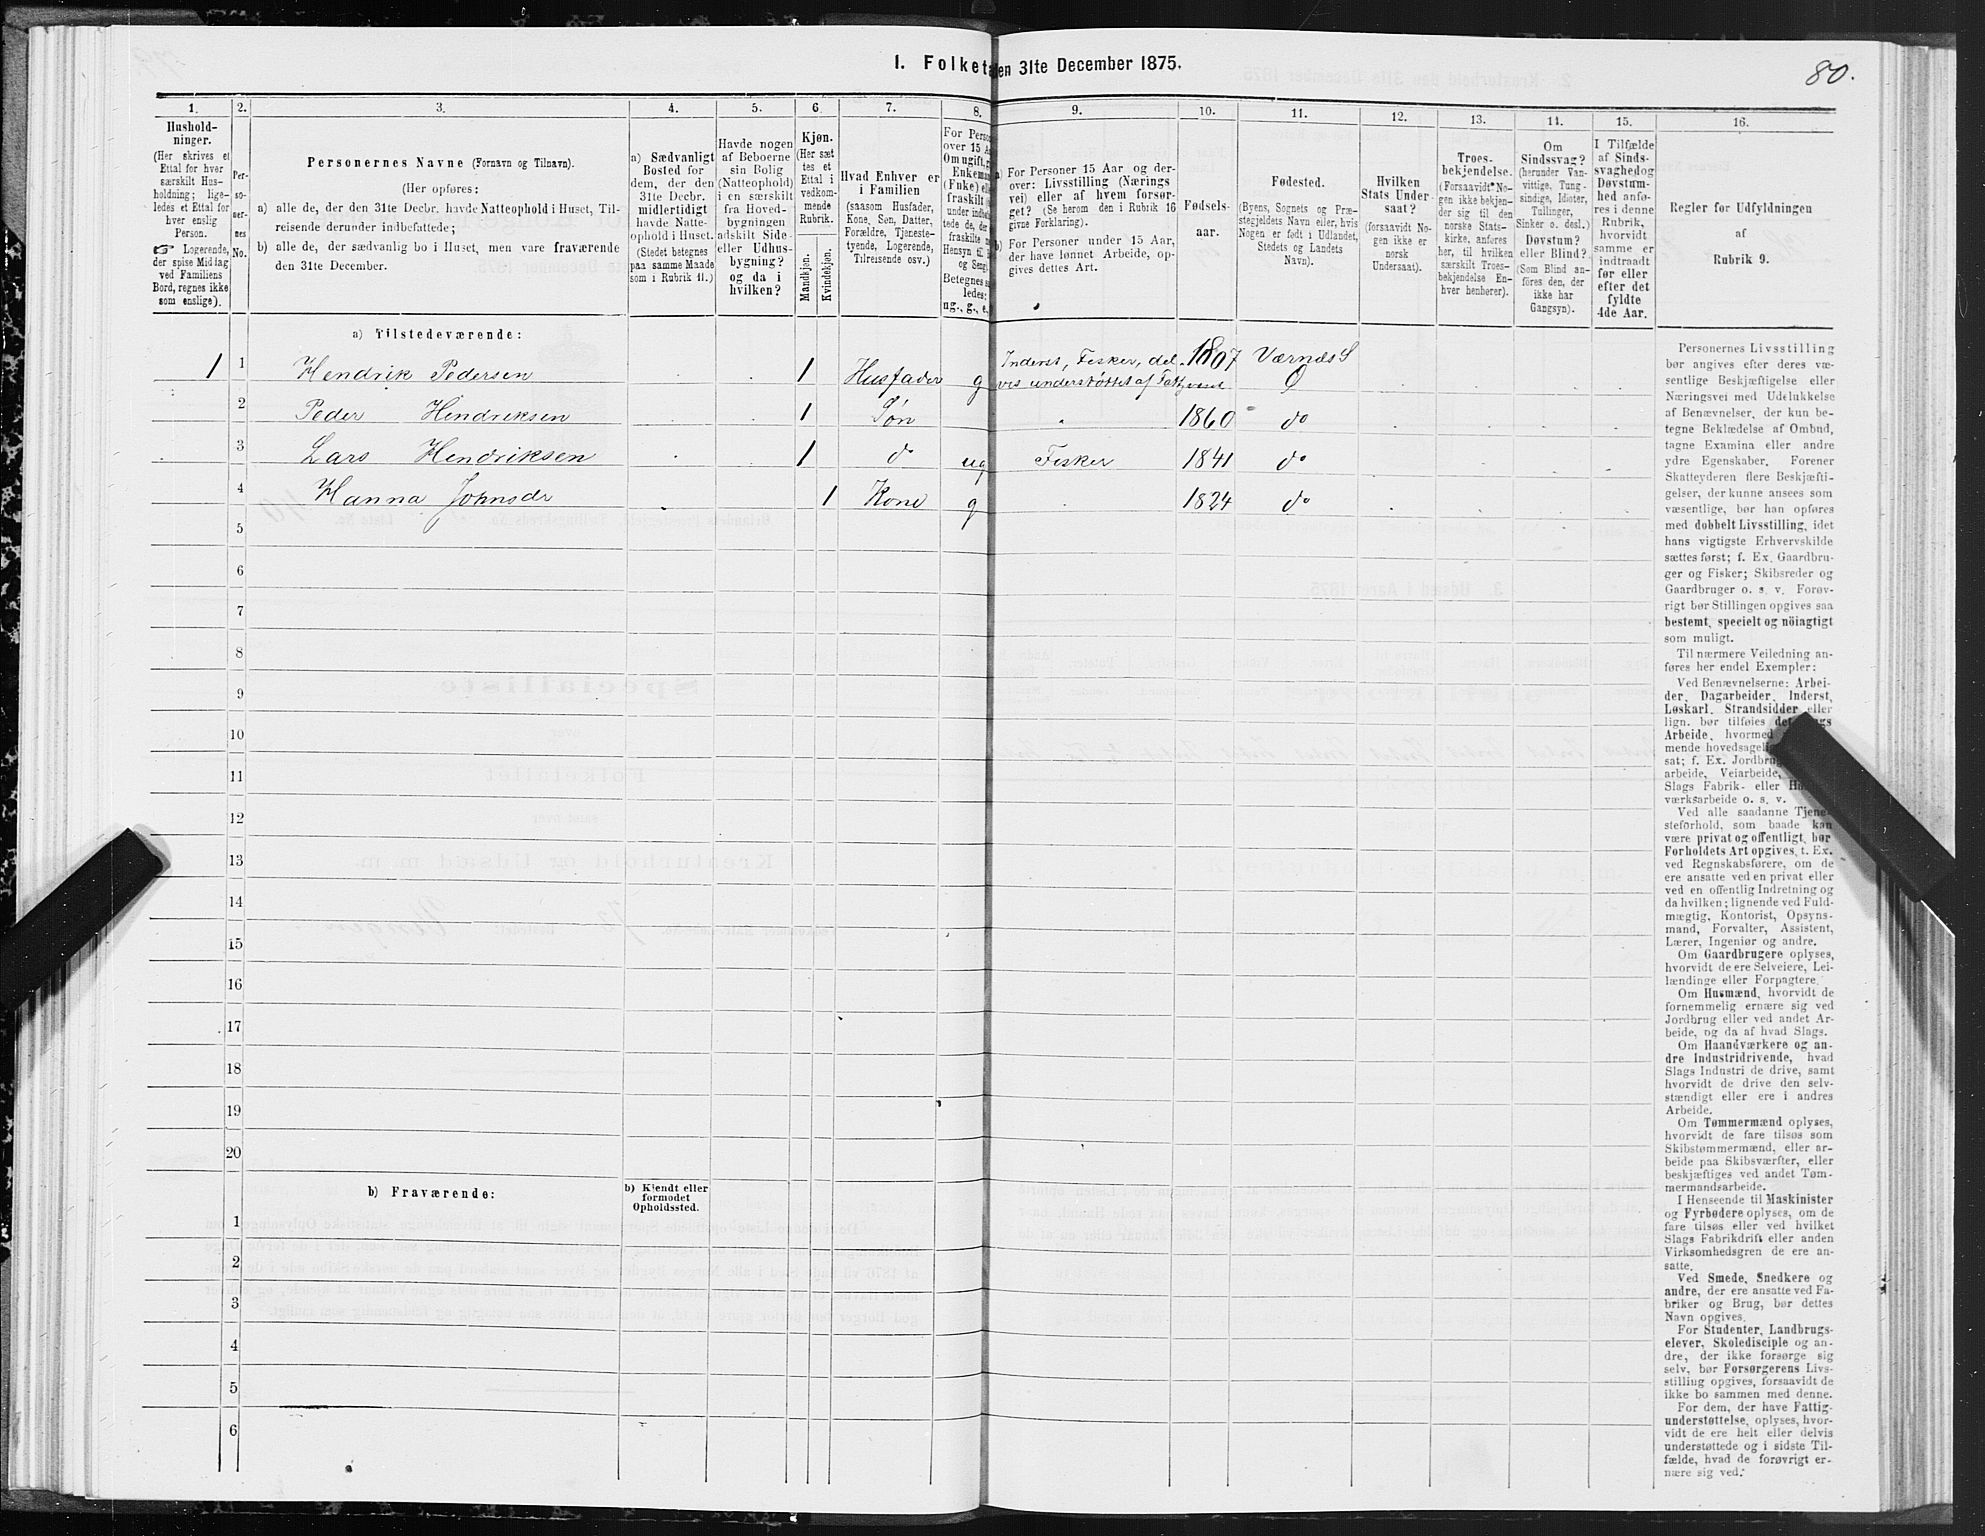 I. Folketa en 31te December 1875.
80.
1.
2.
3.
4.
5.
6.
7.
8.
9.
10.
11.
12.
13.
14.
15.
16.
Hushold-
ninger.
(Her skrives et
Ettal for hver
særskilt Hus-
holdning; lige-
ledes et Ettal for
hver enslig
Person.
☞ Logerende,
der spise Middag
ved Familiens
Bord, regnes ikke
som enslige).
Per-
so-
ner-
nes
No.
Personernes Navne (Fornavn og Tilnavn).
(Her opføres:
a) alle de, der den 31te Decbr. havde Natteophold i Huset, Til-
reisende derunder indbefattede;
b) alle de, der sædvanlig bo i Huset, men vare fraværende
den 31te December.
a) Sædvanligt
Bosted for
dem, der den
31te Decbr.
midlertidigt
havde Natte-
ophold i Huset.
(Stedet betegnes
paa samme Maade
som i Rubrik 11.)
Havde nogen
af Beboerne
sin Bolig
(Natteophold)
i en særskilt
fra Hoved-
bygningen
adskilt Side-
eller Udhus-
bygning?
og da i
hvilken?
Kjøn.
(Her sæt
tes et
Ettal i
vedkom-
mende
Rubrik.
Mandkjøn.
Kvindekjøn.
Hvad Enhver er
i Familien
(saasom Husfader,
Kone, Søn, Datter,
Forældre, Tjeneste-
tyende, Logerende,
Tilreisende osv.)
For Perso
over 15 A
Om ugift, g
Enkeman
(Fnke) ell
fraskilt
under indbe
tede de,
fraskilte
Hensyn til
og Seng
Betegnes s
ledes:
ug., g., e.,
a) For Personer 15 Aar og der-
over: Livsstilling (Nærings
vei) eller af hvem forsør-
get? (Se herom den i Rubrik 16
givne Forklaring).
b) For Personer under 15 Aar,
der have lønnet Arbeide, op-
gives dettes Art.
Fødsels-
aar.
Fødested.
(Byens, Sognets og Præ-
stegjeldets Navn eller, hvis
Nogen er født i Udlandet,
Stedets og Landets
Navn).
Hvilken
Stats Under-
saat?
(forsaavidt No-
gen ikke er
norsk
Undersaat).
Troes-
bekjendelse.
(Forsaavidt No-
gen ikke bekjen-
der sig til den
norske Stats-
kirke, anføres
her, til hvilken
særskilt Troes-
bekjendelse En-
hver henhører).
Om
Sindssvag?
(herunder Van-
vittige, Tung-
sindige, Idioter,
Tullinger,
Sinker o. desl.)
Døvstum?
eller Blind?
(Som Blind an-
føres den, der
ikke har
Gangsyn).
I Tilfælde
af Sinds-
svaghed og
Døvstum-
hed anfø-
res i denne
Rubrik,
hvorvidt
samme er
indtraadt
før eller
efter det
fyldte
4de Aar.
Regler for Udfyldningen
af
Rubrik 9.
a) Tilstedeværende:
1 1 Hendrik Pedersen 1 Husfader g Inderst, Fisker, del- 1807 Værnæs S
vis understøttet af Fattigvæset Ø
2 Peder Hendriksen 1 Søn 1860 do
3 Lars Hendriksen 1 do ug Fisker 1841 do
4 Hanna Johnsdr 1 Kone g 1824 do
5
6
7
8
9
10
11
12
13
14
15
16
17
18
19
20
b) Fraværende:
b) Kjendt eller
formodet
Opholdssted.
1
2
3
4
5
6
Personernes Livsstilling
bør angives efter deres væ-
sentlige Beskjæftigelse eller
Næringsvei med Udelukkelse
af Benævnelser, der kun be-
tegne Beklædelse af Ombud,
tagne Examina eller andre
ydre Egenskaber. Forener
Skatteyderen flere Beskjæfti-
gelser, der kunne ansees som
væsentlige, bør han opføres
med dobbelt Livsstilling, idet
hans vigtigste Erhvervskilde
sættes først; f. Ex. Gaardbru-
ger og Fisker; Skibsreder og
Gaardbruger o. s. v. Forøv-
rigt bør Stillingen opgives saa
bestemt, specielt og nöiagtigt
som muligt.
Til nærmere Veiledning an-
føres her endel Exempler:
Ved Benævnelserne: Arbei-
der, Dagarbeider, Inderst,
Løskarl, Strandsidder eller
lign. bør tilføies det Slags
Arbeide, hvormed
mende hovedsagelig
sat; f. Ex. Jordbru
arbeide, Veiarbeide,
Slags Fabrik- eller Ha
værksarbeide o. s. v.
Ved alle saadanne Tjene-
steforhold, som baade kan
være privat og offentligt, bør
Forholdets Art opgives, t. Ex.
ved Regnskabsførere, om de
ere ansatte ved en privat eller
ved en offentlig Indretning og
da hvilken; lignende ved Fuld-
mægtig, Kontorist, Opsyns-
mand, Forvalter, Assistent,
Lærer, Ingeniør og andre.
Om Gaardbrugere oplyses,
hvorvidt de ere Selveiere, Lei-
lændinge eller Forpagtere.
Om Husmænd, hvorvidt de
fornemmelig ernære sig ved
Jordbrug eller ved andet Ar-
beide, og da af hvad Slags.
Om Haandværkere og an-
dre Industridrivende, hvad
Slags Industri de drive, samt
hvorvidt de drive den selv-
stændigt eller ere i andres
Arbeide.
Om Tømmermænd oplyses,
hvorvidt de fare tilsøs som
Skibstømmermænd, eller ar-
beide paa Skibsværfter, eller
beskjæftiges ved andet Tøm-
mermandsarbeide.
I Henseende til Maskinister
og Fyrbødere oplyses, om de
fare tilsøs eller ved hvilket
Slags Fabrikdrift eller anden
Virksomhedsgren de ere an-
satte.
Ved Smede, Snedkere og
andre, der ere ansatte ved Fa-
briker og Brug, bør dettes
Navn opgives.
For Studenter, Landbrugs-
elever, Skoledisciple og an-
dre, der ikke forsørge sig
selv, bør Forsørgerens Livs-
stilling opgives, forsaavidt de
ikke bo sammen med denne.
For dem, der have Fattig-
understøttelse, oplyses, hvor-
vidt de ere helt eller delvis
understøttede og i sidste Til-
fælde, hvad de forøvrigt er-
nære sig ved.